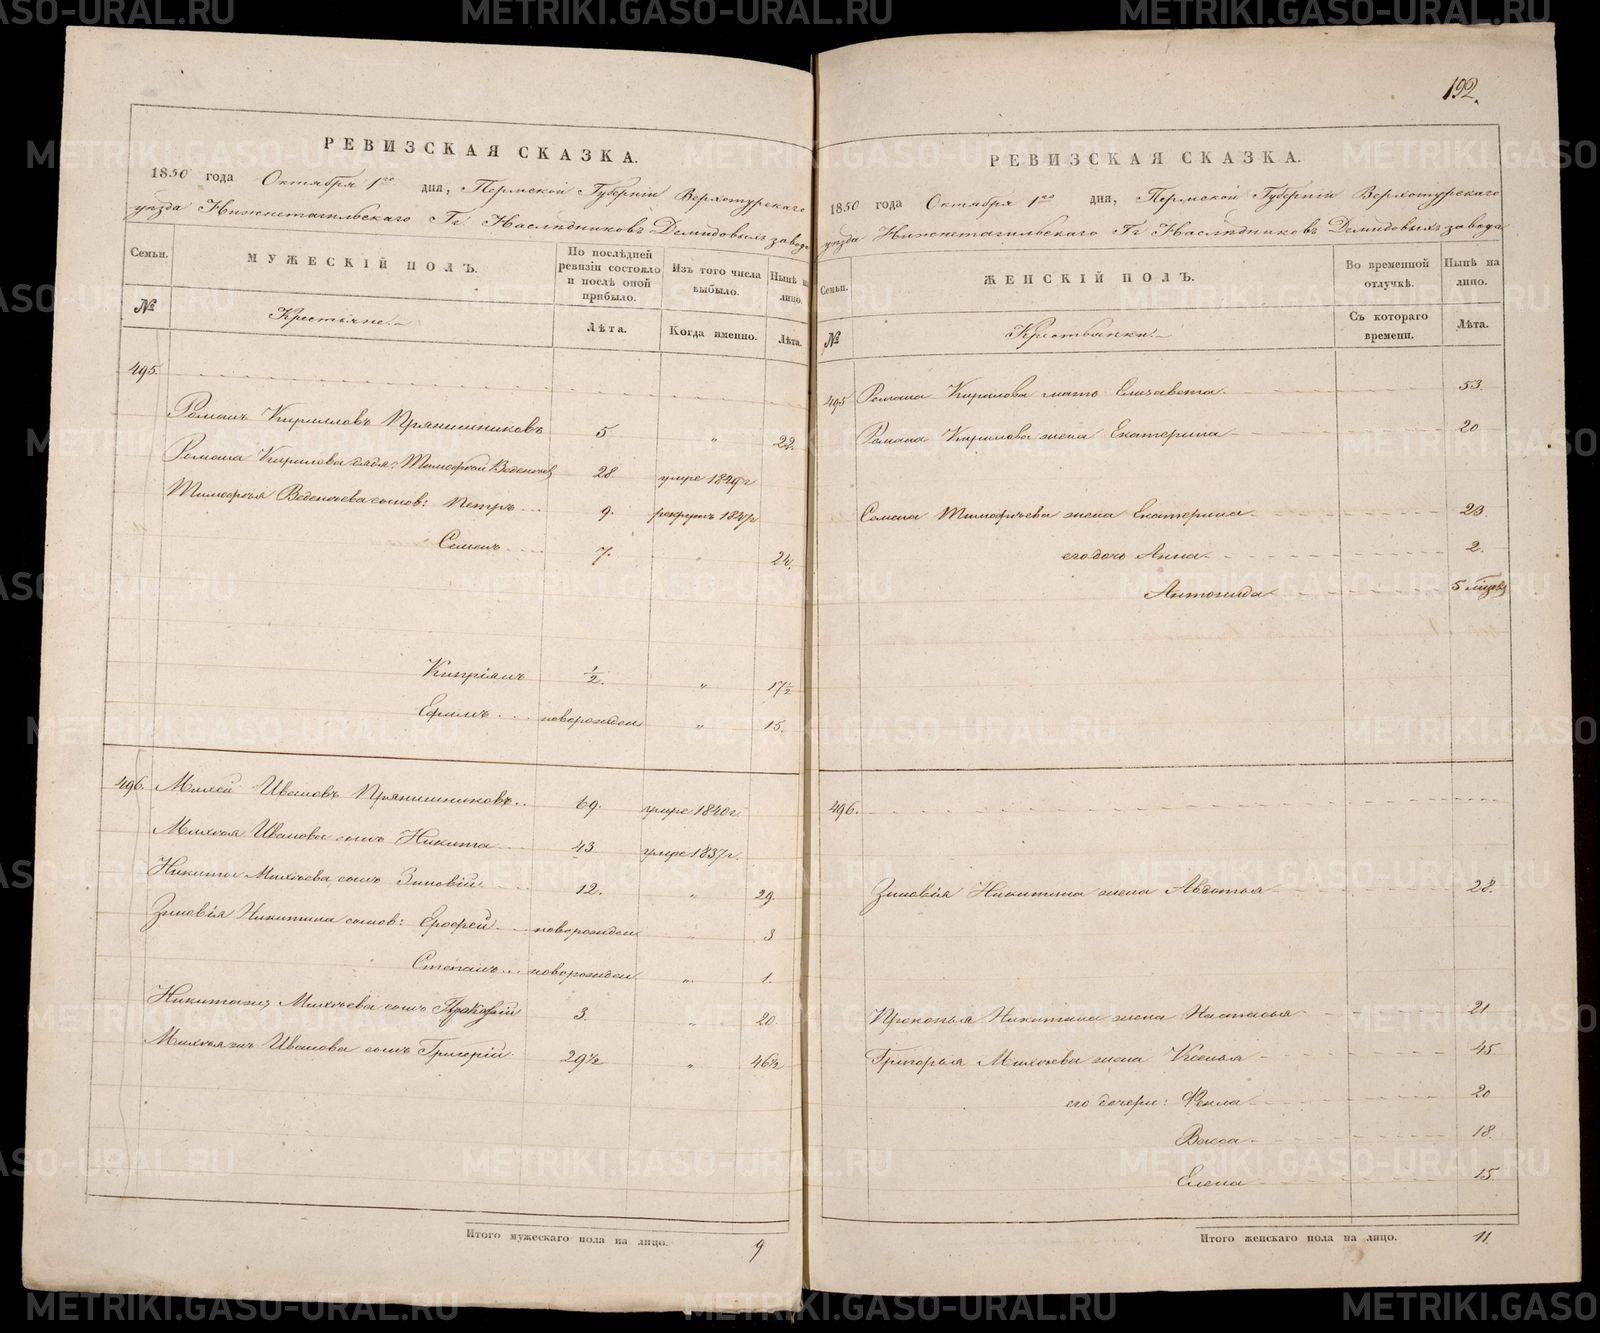 РЕВИЗСКАЯ СКАЗКА.
1850 года Октября 1го дня, Пермской Губерніи Верхотурскаго
уѣзда Нижнетагильскаго Гг. Наслѣдниковъ Демидовыхъ завода
Семьи.
МУЖЕСКІЙ ПОЛЪ.
По послѣдней ревизіи состояло и послѣ оной прибыло.
Изъ того числа выбыло.
Нынѣ на лицо.
№
Крестьяне.
Лѣта.
Когда именно.
Лѣта.
495.
Романъ Кирилловъ Прянишниковъ 5 " 22.
Романа Кирилова дядя: Тимофей Веденеевъ 28. умре 1849 г
Тимофея Веденеева сынов: Петръ 9. рекрутъ 1847 г
Семенъ 7. " 24.
Кипріянъ 1/2. " 17 1/2
Ефимъ новорожден " 15.
496. Михей Ивановъ Прянишниковъ 69. умре 1840 г.
Михея Иванова сынъ Никита 43 умре 1837 г.
Никиты Михеева сынъ Зиновій 12. " 29.
Зиновія Никитина сынов: Ерофей новорожден " 3
Степанъ новорожден " 1.
Никитаж, Михеева сынъ Прокофій 3. " 20
Михея ж Иванова сынъ Григорій 29 1/2 " 46 1/2
Итого мужескаго пола на лицо. 9
192.
РЕВИЗСКАЯ СКАЗКА.
1850 года Октября 1го дня, Пермской Губерніи Верхотурскаго
уѣзда Нижнетагильскаго Гг. Наслѣдниковъ Демидовыхъ завода
Семьи.
ЖЕНСКІЙ ПОЛЪ.
Во временной отлучкѣ.
Нынѣ на лицо.
№
Крестьянки.
Съ котораго времени.
Лѣта.
495 Романа Кирилова мать Елизавета 53.
Романа Кирилова жена Екатерина 20
Семена Тимофеева жена Екатерина 23
его дочь Анна 2.
Антонида 5 мѣсяц
496.
Зиновія Никитина жена Авдотья 28.
Прокопья Никитина жена Настасья 21
Григорья Михеева жена Ксенья 45
его дочери: Фекла 20
Васса 18.
Елена 15
Итого женскаго пола на лицо. 11.
METRIKI.GASO-URAL.RU